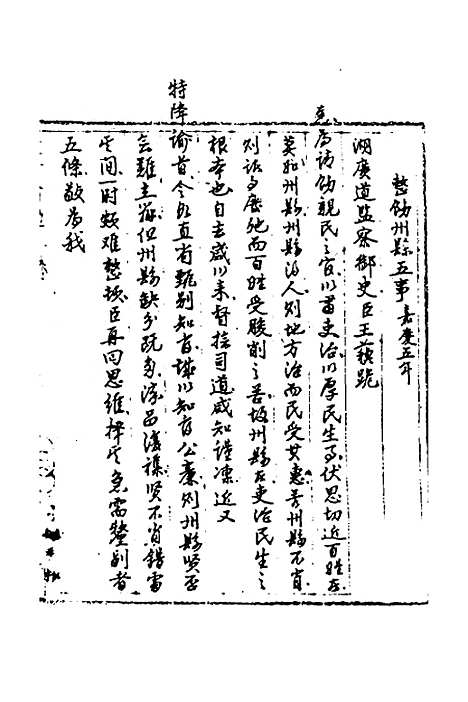 整飭州縣五事 嘉慶五年
湖廣道監察御史臣王蘇跪
奏為請飭親民之官以肅吏治以厚民生事伏思切近百姓者
莫如州縣州縣得人則地方治而民受其惠若州縣不肖
則政多廢弛而百姓受朘削之苦故州縣在吏治民生之
根本也自去歲以來督撫司道咸知謹凜近又
特降諭旨令各直省甄別知府俱以知府公廉則州縣賢否
去難主蔽但州縣缺分既多流品複襍賢不肖錯雷
其間一時頗難整頓臣再四思維擇其急需釐剔者
五條敬為我